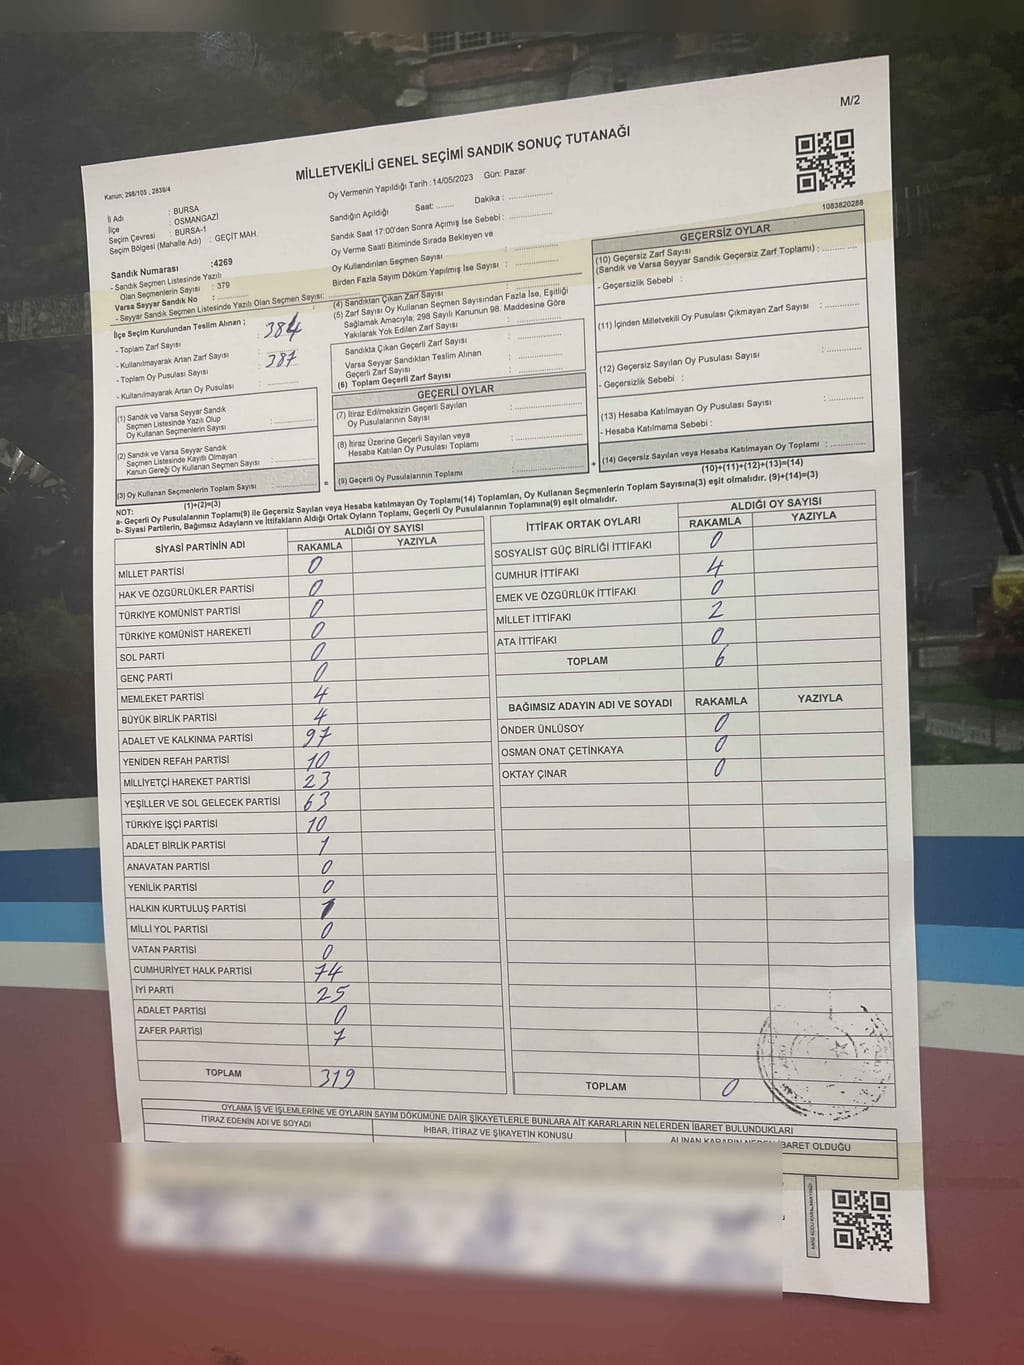 M/2
MİLLETVEKİLİ GENEL SEÇİMİ SANDIK SONUÇ TUTANAĞI
Kanun; 298/105 , 2839/4
Oy Vermenin Yapıldığı Tarih :14/05/2023 Gün: Pazar
1083820288
İl Adı : BURSA
İlçe : OSMANGAZİ
Seçim Çevresi : BURSA-1
Seçim Bölgesi (Mahalle Adı) : GEÇİT MAH.
Sandık Numarası :4269
- Sandık Seçmen Listesinde Yazılı
Olan Seçmenlerin Sayısı : 379
Varsa Seyyar Sandık No :
- Seyyar Sandık Seçmen Listesinde Yazılı Olan Seçmen Sayısı:
İlçe Seçim Kurulundan Teslim Alınan ;
- Toplam Zarf Sayısı : 384
- Kullanılmayarak Artan Zarf Sayısı :
- Toplam Oy Pusulası Sayısı : 387
- Kullanılmayarak Artan Oy Pusulası :
(1) Sandık ve Varsa Seyyar Sandık
Seçmen Listesinde Yazılı Olup
Oy Kullanan Seçmenlerin Sayısı :
(2) Sandık ve Varsa Seyyar Sandık
Seçmen Listesinde Kayıtlı Olmayan
Kanun Gereği Oy Kullanan Seçmen Sayısı :
(3) Oy Kullanan Seçmenlerin Toplam Sayısı :
(1)+(2)=(3)
Sandığın Açıldığı Saat: Dakika :
Sandık Saat 17:00'den Sonra Açımış İse Sebebi :
Oy Verme Saati Bitiminde Sırada Bekleyen ve
Oy Kullandırılan Seçmen Sayısı :
Birden Fazla Sayım Döküm Yapılmış İse Sayısı :
(4) Sandıktan Çıkan Zarf Sayısı :
(5) Zarf Sayısı Oy Kullanan Seçmen Sayısından Fazla İse, Eşitliği
Sağlamak Amacıyla; 298 Sayılı Kanunun 98. Maddesine Göre
Yakılarak Yok Edilen Zarf Sayısı :
Sandıkta Çıkan Geçerli Zarf Sayısı :
Varsa Seyyar Sandıktan Teslim Alınan
Geçerli Zarf Sayısı :
(6) Toplam Geçerli Zarf Sayısı :
GEÇERLİ OYLAR
(7) İtiraz Edilmeksizin Geçerli Sayılan
Oy Pusulalarının Sayısı :
(8) İtiraz Üzerine Geçerli Sayılan veya
Hesaba Katılan Oy Pusulası Toplamı :
= (9) Geçerli Oy Pusulalarının Toplamı : +
GEÇERSİZ OYLAR
(10) Geçersiz Zarf Sayısı
(Sandık ve Varsa Seyyar Sandık Geçersiz Zarf Toplamı) :
- Geçersizlik Sebebi :
(11) İçinden Milletvekili Oy Pusulası Çıkmayan Zarf Sayısı :
(12) Geçersiz Sayılan Oy Pusulası Sayısı :
- Geçersizlik Sebebi :
(13) Hesaba Katılmayan Oy Pusulası Sayısı :
- Hesaba Katılmama Sebebi :
(14) Geçersiz Sayılan veya Hesaba Katılmayan Oy Toplamı :
(10)+(11)+(12)+(13)=(14)
NOT:
a- Geçerli Oy Pusulalarının Toplamı(9) ile Geçersiz Sayılan veya Hesaba katılmayan Oy Toplamı(14) Toplamları, Oy Kullanan Seçmenlerin Toplam Sayısına(3) eşit olmalıdır. (9)+(14)=(3)
b- Siyasi Partilerin, Bağımsız Adayların ve İttifakların Aldığı Ortak Oyların Toplamı, Geçerli Oy Pusulalarının Toplamına(9) eşit olmalıdır.
SİYASİ PARTİNİN ADI ALDIĞI OY SAYISI
RAKAMLA YAZIYLA
MİLLET PARTİSİ 0
HAK VE ÖZGÜRLÜKLER PARTİSİ 0
TÜRKİYE KOMÜNİST PARTİSİ 0
TÜRKİYE KOMÜNİST HAREKETİ 0
SOL PARTİ 0
GENÇ PARTİ 0
MEMLEKET PARTİSİ 4
BÜYÜK BİRLİK PARTİSİ 4
ADALET VE KALKINMA PARTİSİ 97
YENİDEN REFAH PARTİSİ 10
MİLLİYETÇİ HAREKET PARTİSİ 23
YEŞİLLER VE SOL GELECEK PARTİSİ 63
TÜRKİYE İŞÇİ PARTİSİ 10
ADALET BİRLİK PARTİSİ 1
ANAVATAN PARTİSİ 0
YENİLİK PARTİSİ 0
HALKIN KURTULUŞ PARTİSİ 1
MİLLİ YOL PARTİSİ 0
VATAN PARTİSİ 0
CUMHURİYET HALK PARTİSİ 74
İYİ PARTİ 25
ADALET PARTİSİ 0
ZAFER PARTİSİ 7
TOPLAM 319
İTTİFAK ORTAK OYLARI ALDIĞI OY SAYISI
RAKAMLA YAZIYLA
SOSYALİST GÜÇ BİRLİĞİ İTTİFAKI 0
CUMHUR İTTİFAKI 4
EMEK VE ÖZGÜRLÜK İTTİFAKI 0
MİLLET İTTİFAKI 2
ATA İTTİFAKI 0
TOPLAM 6
BAĞIMSIZ ADAYIN ADI VE SOYADI RAKAMLA YAZIYLA
ÖNDER ÜNLÜSOY 0
OSMAN ONAT ÇETİNKAYA 0
OKTAY ÇINAR 0
TOPLAM 0
OYLAMA İŞ VE İŞLEMLERİNE VE OYLARIN SAYIM DÖKÜMÜNE DAİR ŞİKAYETLERLE BUNLARA AİT KARARLARIN NELERDEN İBARET BULUNDUKLARI
İTİRAZ EDENİN ADI VE SOYADI İHBAR, İTİRAZ VE ŞİKAYETİN KONUSU ALINAN KARARIN NEDEN İBARET OLDUĞU